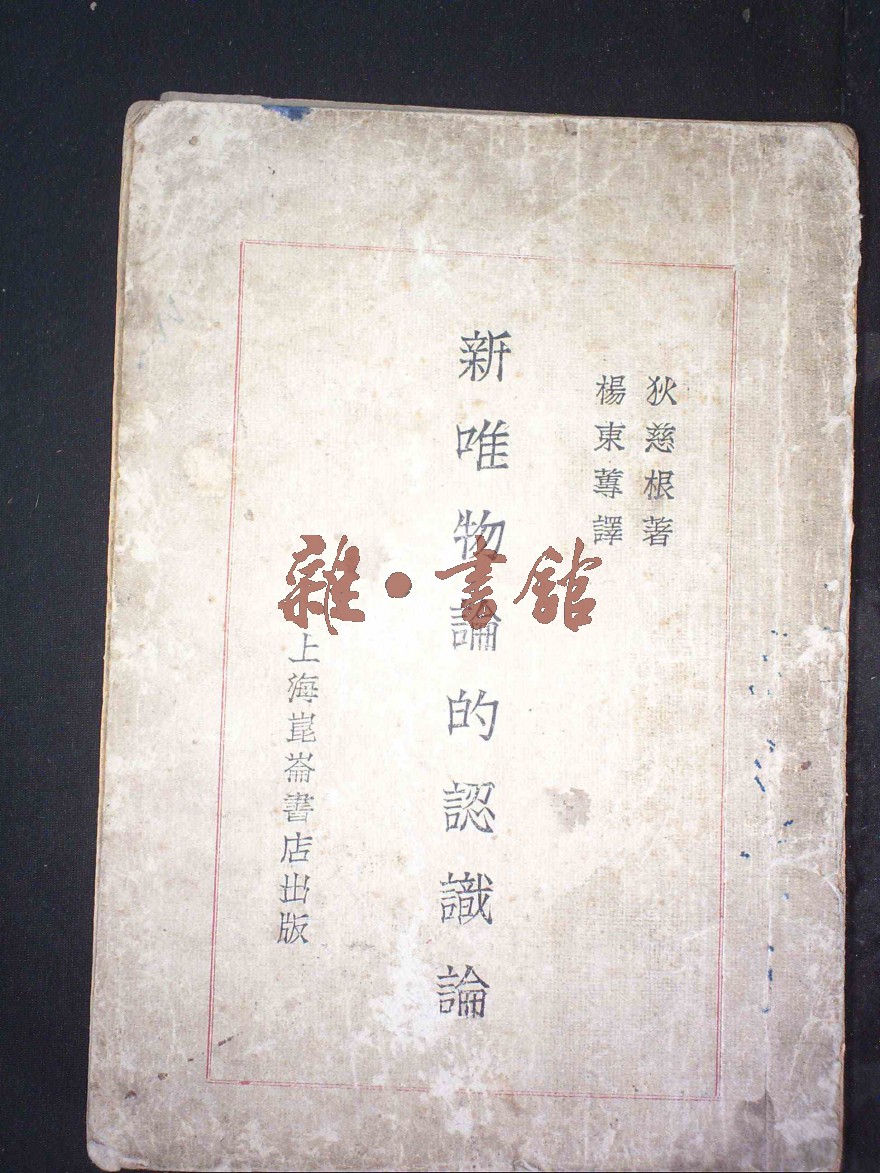 狄慈根著
楊東蓴譯
新唯物論的認識論
上海崑崙書店出版
雜·書館